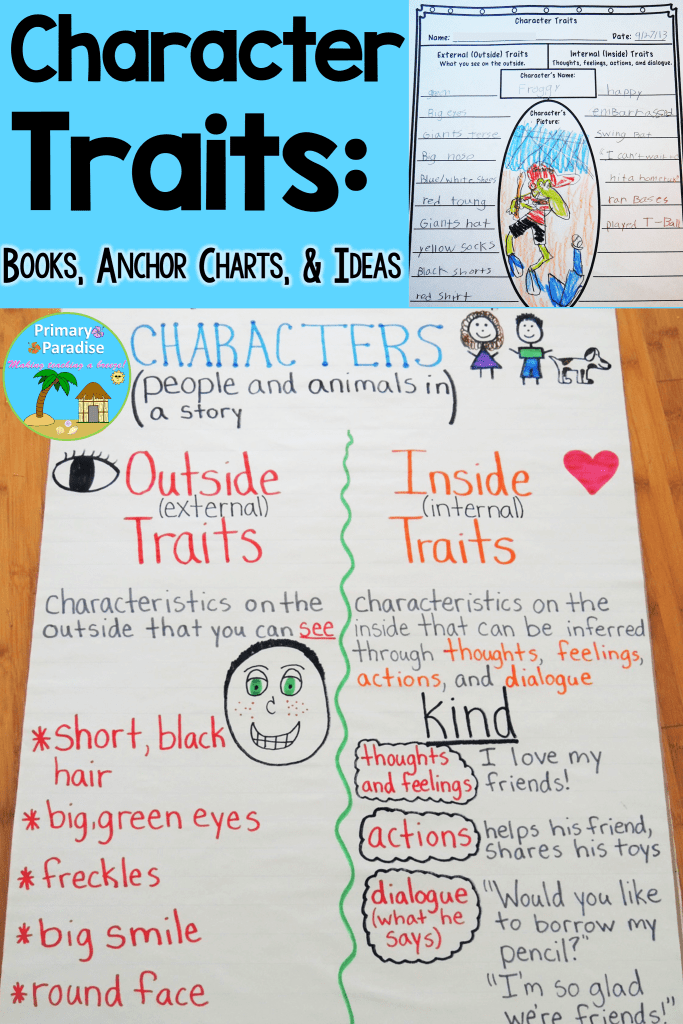 Character
Traits:
Books, Anchor Charts, & Ideas
Character Traits
Name: Date: 9/27/13
External (Outside) Traits
What you see on the outside.
Internal (Inside) Traits
Thoughts, feelings, actions, and dialogue.
Character's Name:
Froggy
Character's
Picture:
Big eyes
Giants terse
Big noso
Blue/white shoes
red toung
Giants hat
yellow socks
Black shorts
red shirt
happy
embarrassed
Swing Bat
"I can't wait to
hit a homerun"
ran Bases
played T-Ball
Primary
Paradise
CHARACTERS
(people and animals in
a story)
Outside
(external)
Traits
Characteristics on the
outside that you can see
*short, black
hair
*big, green eyes
*freckles
*big smile
*round face
Inside
(internal)
Traits
Characteristics on the
inside that can be inferred
through thoughts, feelings,
actions, and dialogue
kind
thoughts
and feelings
I love my
friends!
actions
helps his friend,
shares his toys
dialogue
(what he
says)
"Would you like
to borrow my
pencil?"
"I'm so glad
we're friends!"